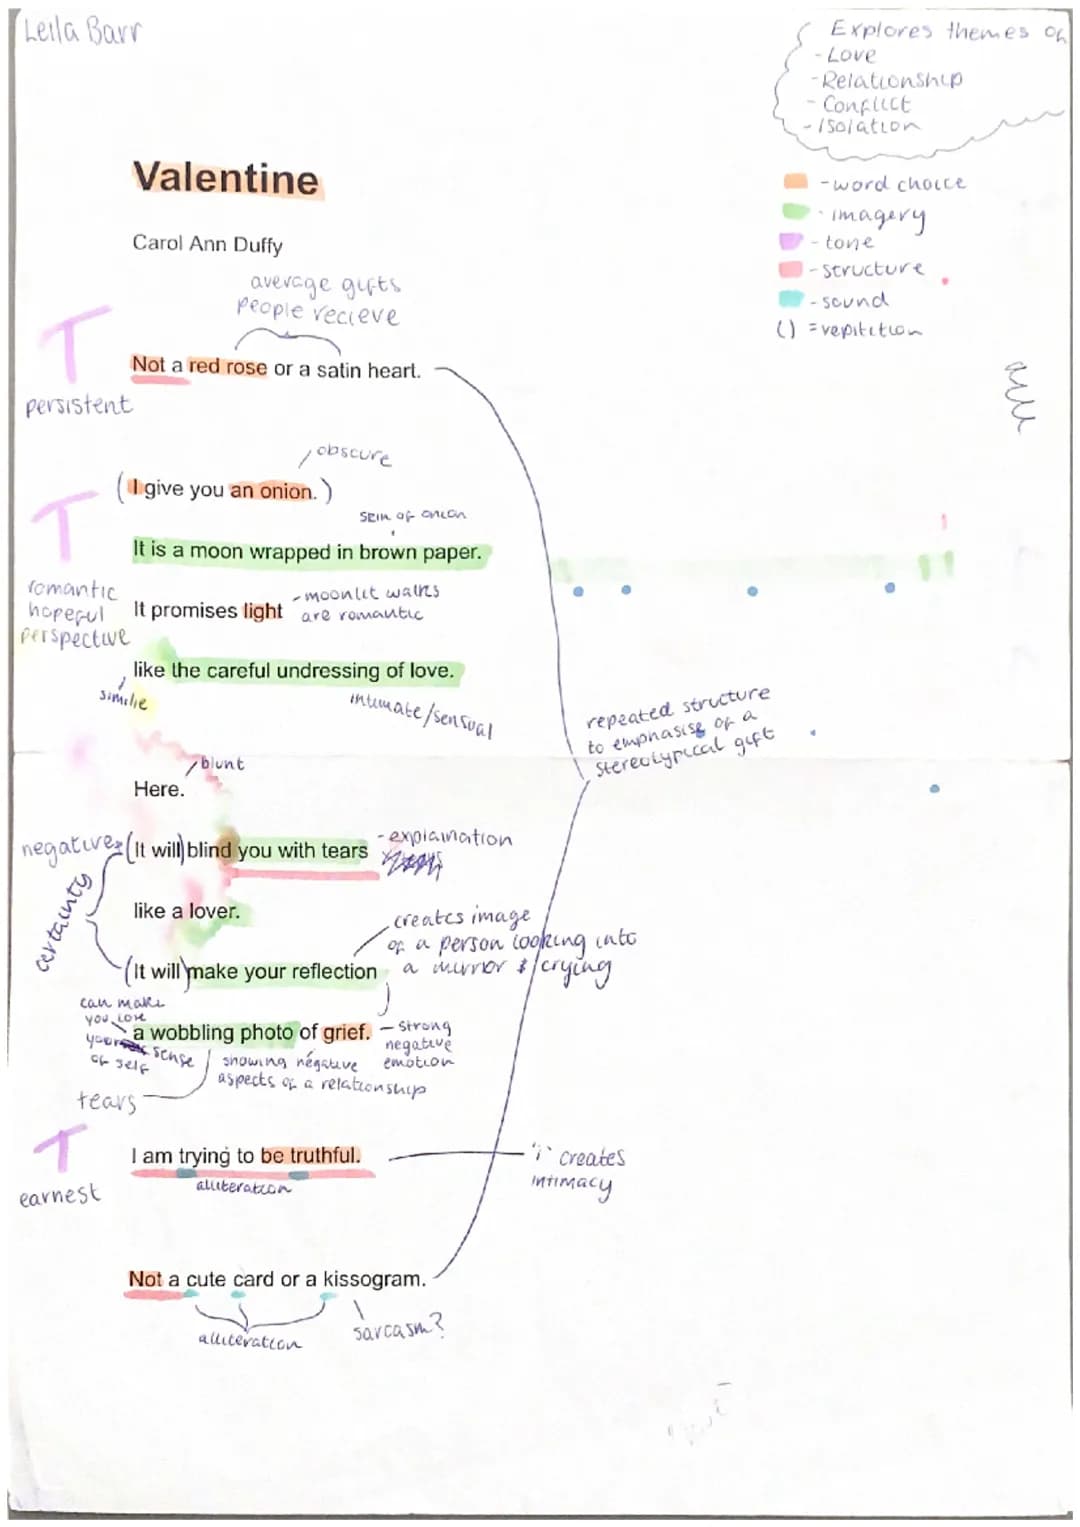 Leila Barr
Explores themes of
-Love
-Relationship
- Conflict
-Isolation
Valentine
-word choice
- imagery
- tone
-structure
-sound
() =repitition
Carol Ann Duffy
average gifts
people recieve
T
Not a red rose or a satin heart.
persistent
obscure
(I give you an onion.)
T
skin of onion
It is a moon wrapped in brown paper.
romantic
hopeful
perspective
-moonlit walks
are romantic
It promises light
like the careful undressing of love.
similie
intimate/sensual
repeated structure
to emphasise of a
stereotypical gift
blunt
Here.
negative
(It will) blind you with tears
-explaination
certainty
like a lover.
creates image
of a person looking into
a mirror & crying
(It will) make your reflection
can make
you lose
your sense
of self
a wobbling photo of grief.
- strong
negative
emotion
showing negative
aspects of a relationship
tears
T
I am trying to be truthful.
earnest
alliteration
'i' creates
intimacy
Not a cute card or a kissogram.
alliteration
sarcasm?